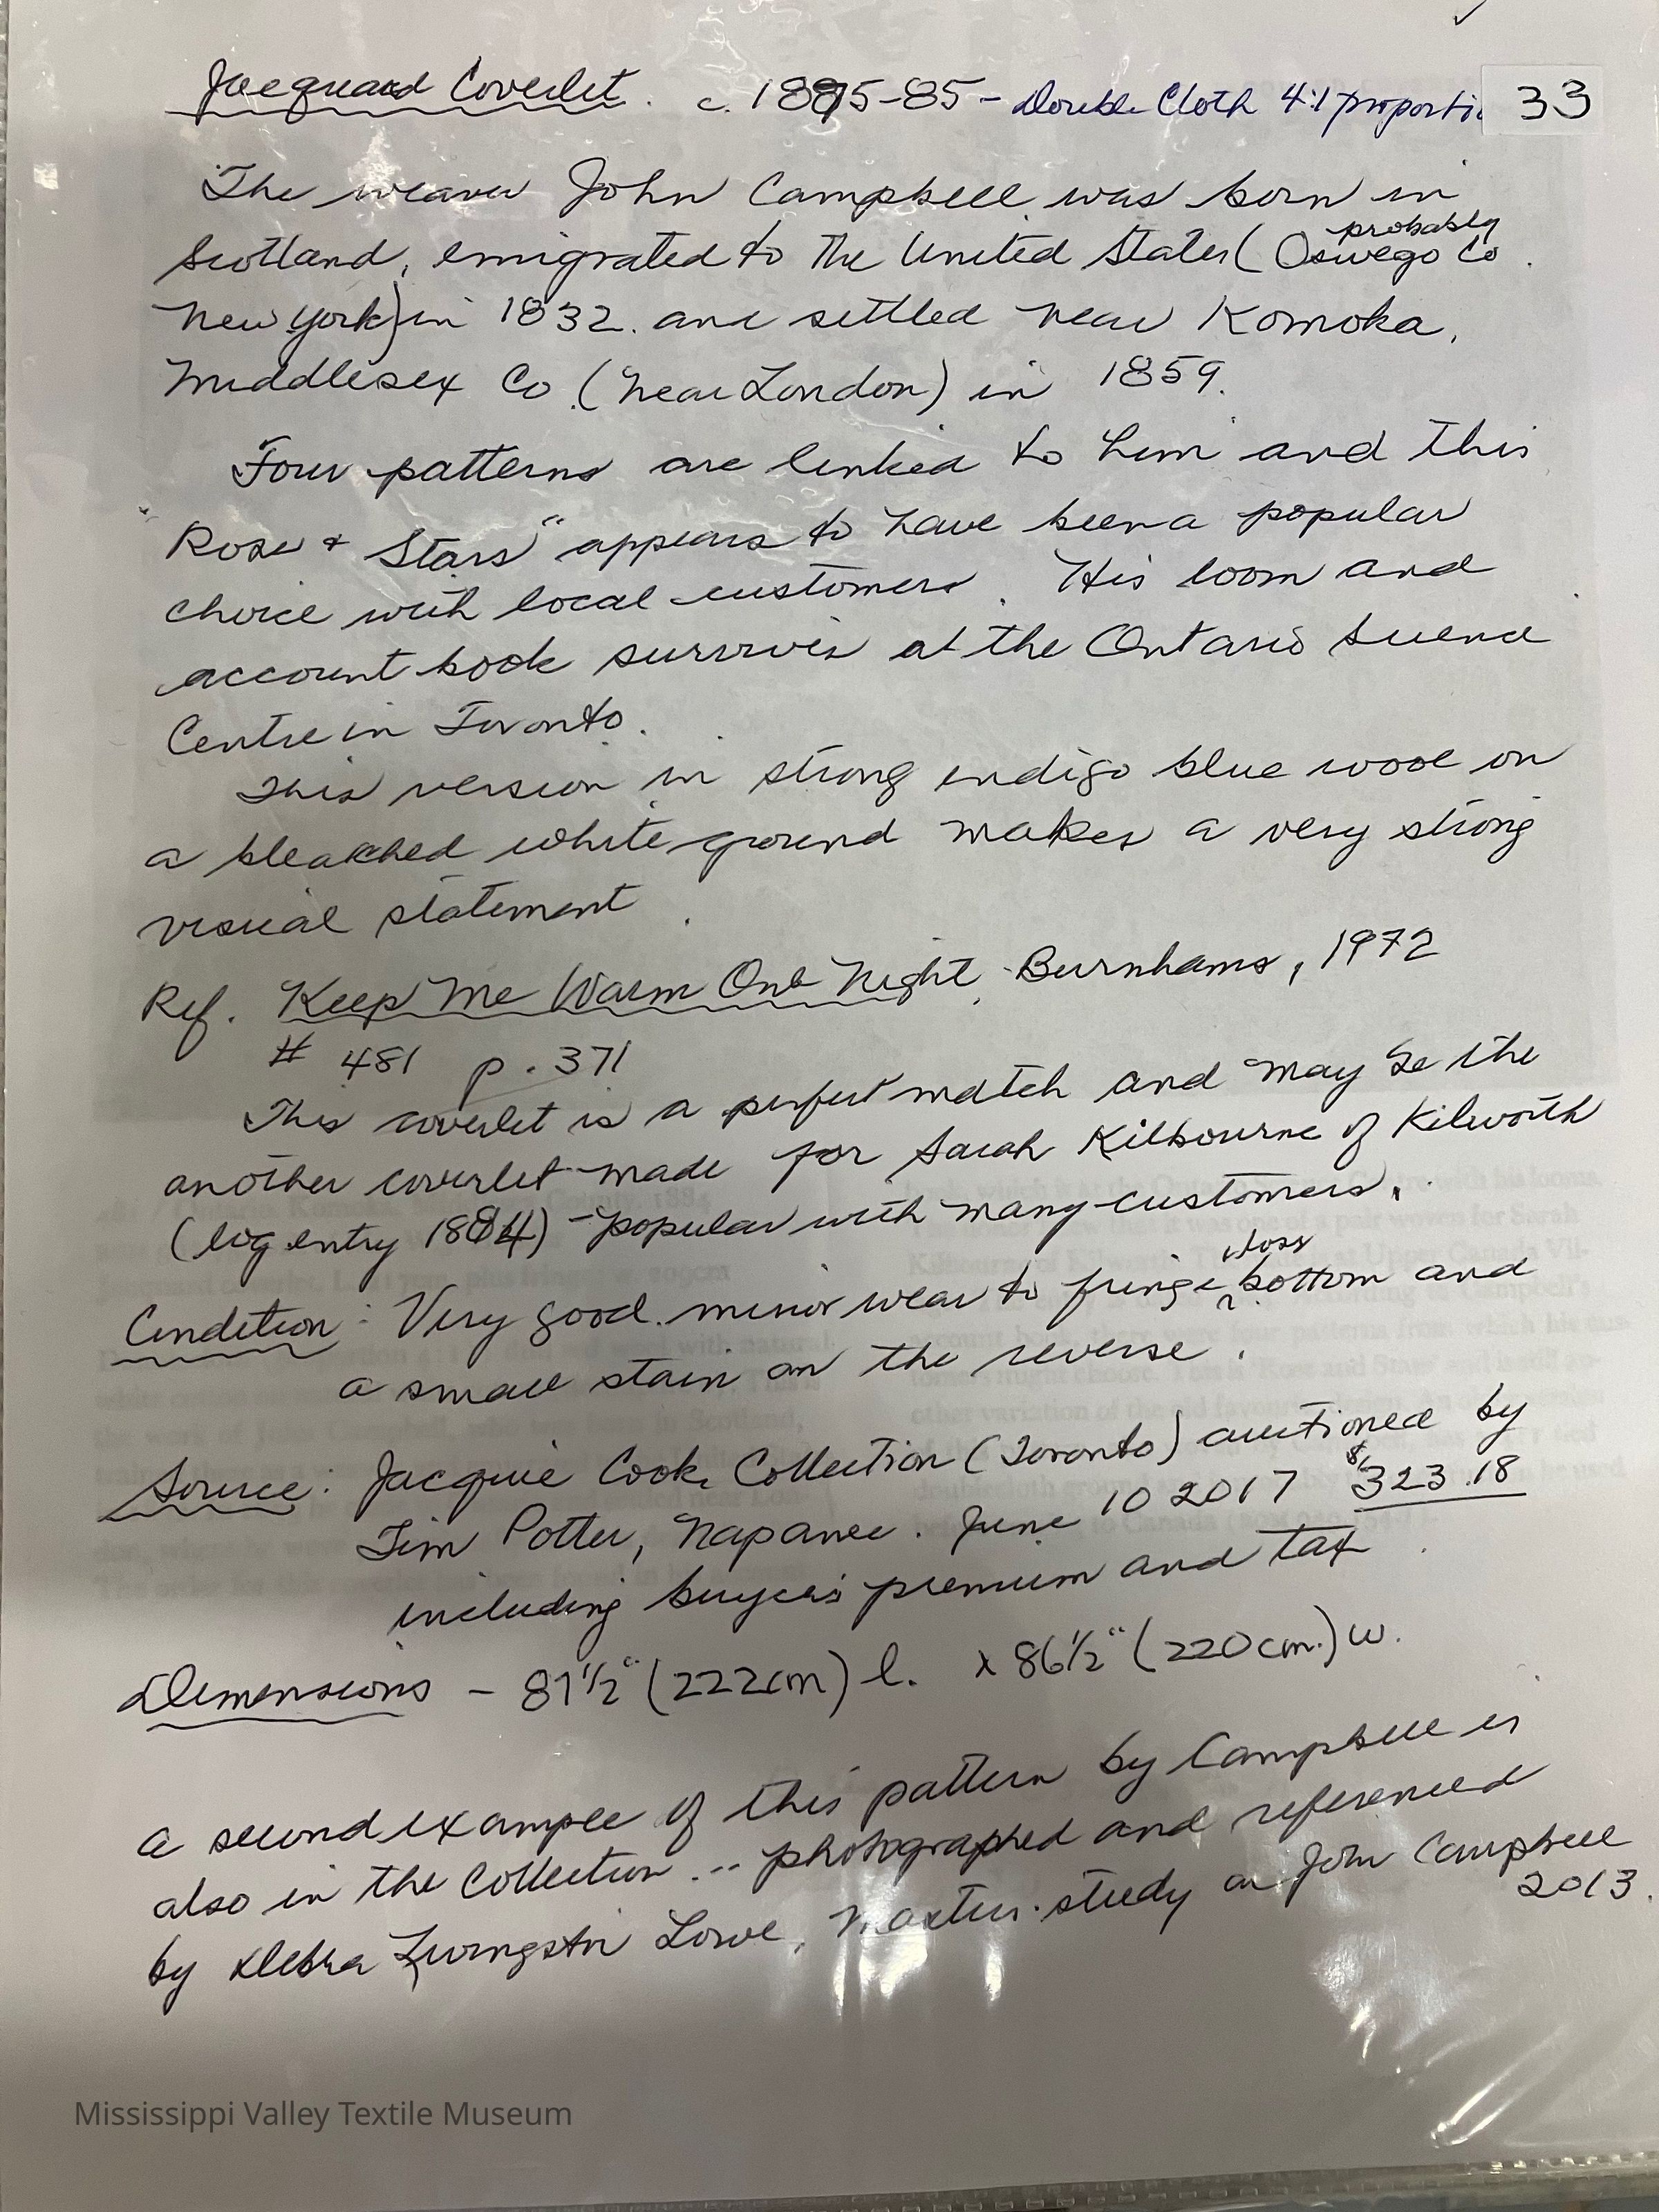 Jacquard Coverlet. c. 1875-85 - Double Cloth 4:1 proportio 33
The weaver John Campbell was born in
Scotland, emigrated to the United States (probably Oswego Co.
New York) in 1832 and settled near Komoka,
Middlesex Co. (near London) in 1859.
Four patterns are linked to him and this
"Rose + Stars" appears to have been a popular
choice with local customers. His loom and
account book survives at the Ontario Science
Centre in Toronto.
This version in strong indigo blue wool on
a bleached white ground makes a very strong
visual statement.
Ref. Keep Me Warm One Night, Burnhams, 1972
# 481 p. 371
This coverlet is a perfect match and may be the
another coverlet made for Sarah Kilbourne of Kilworth
(log entry 1884) - popular with many customers.
Condition: Very good. minor wear to fringe, loss bottom and
a small stain on the reverse.
Source: Jacquie Cook Collection (Toronto) auctioned by
Tim Potter, Napanee. June 10 2017 $323.18
including buyer's premium and tax.
Dimensions - 87½" (222cm) l. x 86½" (220cm.) w.
a second example of this pattern by Campbell is
also in the Collection... photographed and referenced
by Debra Livingston Lowe, Master study on John Campbell
2013.
Mississippi Valley Textile Museum